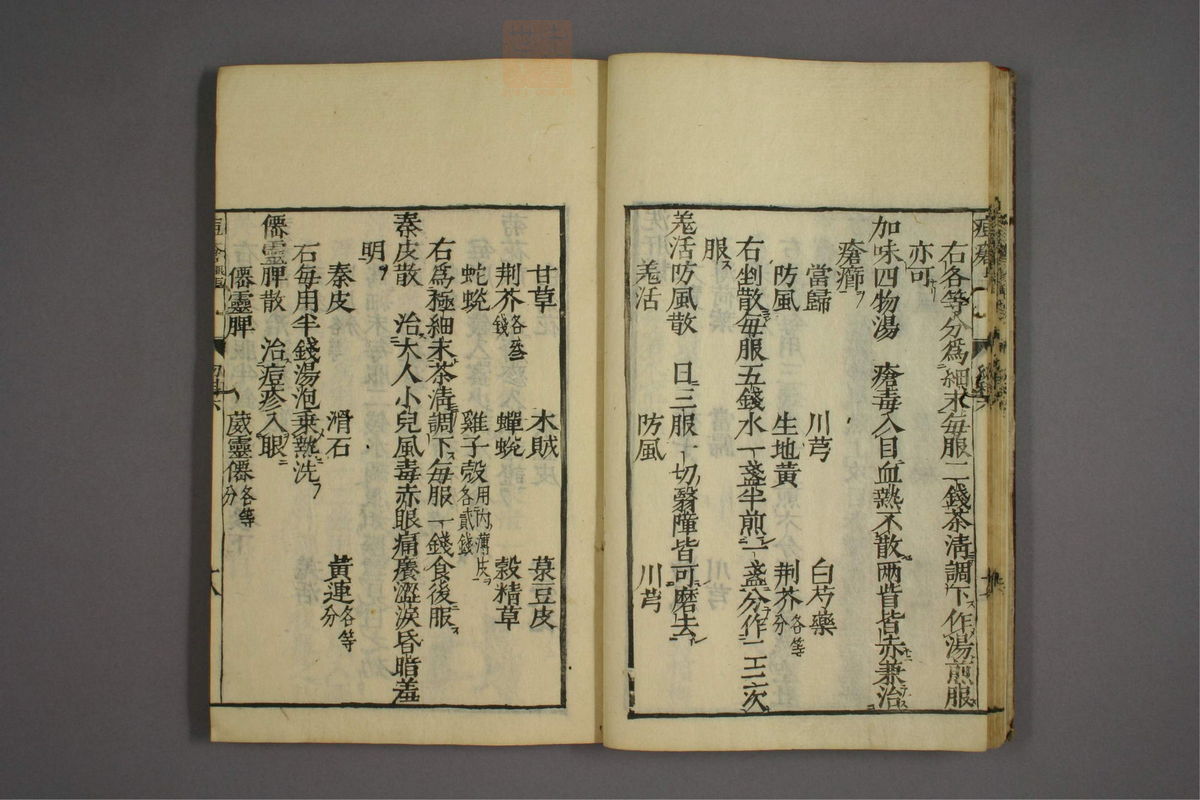 右各等分爲細末毎服二錢茶清調下作湯煎服
亦可
加味四物湯　瘡毒入目血熱不散兩眥皆赤兼治
瘡癤
當歸　川芎　白芍藥
防風　生地黄　荆芥各等分
右剉散毎服五錢水一盞半煎一盞分作二三次
服
羗活防風散　日三服一切翳障皆可磨去
羗活　防風　川芎
甘草　木賊　菉豆皮
荆芥各錢　蟬蛻　穀精草
蛇蛻　雞子殻用内薄皮各貳錢
右爲極細末茶清調下毎服一錢食後服
秦皮散　治大人小兒風毒赤眼痛癢澀淚昏暗羞
明
秦皮　滑石　黄連各等分
右毎用半錢湯泡乗熱洗
僊靈脾散　治痘疹入眼
僊靈脾　葳靈僊各等分